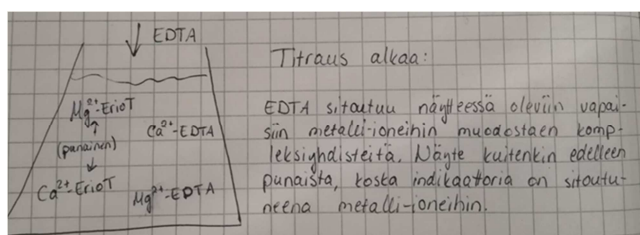 EDTA
Mg²⁺-ErioT
(punainen)
Ca²⁺-EDTA
Ca²⁺-ErioT
Mg²⁺-EDTA
Titraus alkaa:
EDTA sitoutuu näytteessä oleviin vapai-
siin metalli-ioneihin muodostaen komp-
leksiyhdisteitä. Näyte kuitenkin edelleen
punaista, koska indikaattoria on sitoutu-
neena metalli-ioneihin.